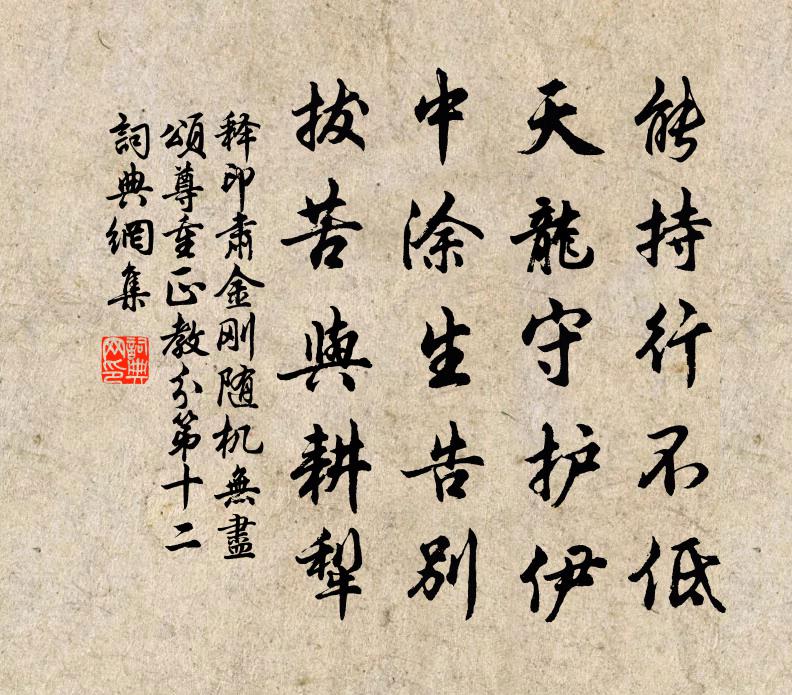 能持行不低
天龍守护伊
中涂生告别
拔苦與耕犁
释印肃金刚随机無盡
頌尊重正教分第十二
詞典網集
詞典網印